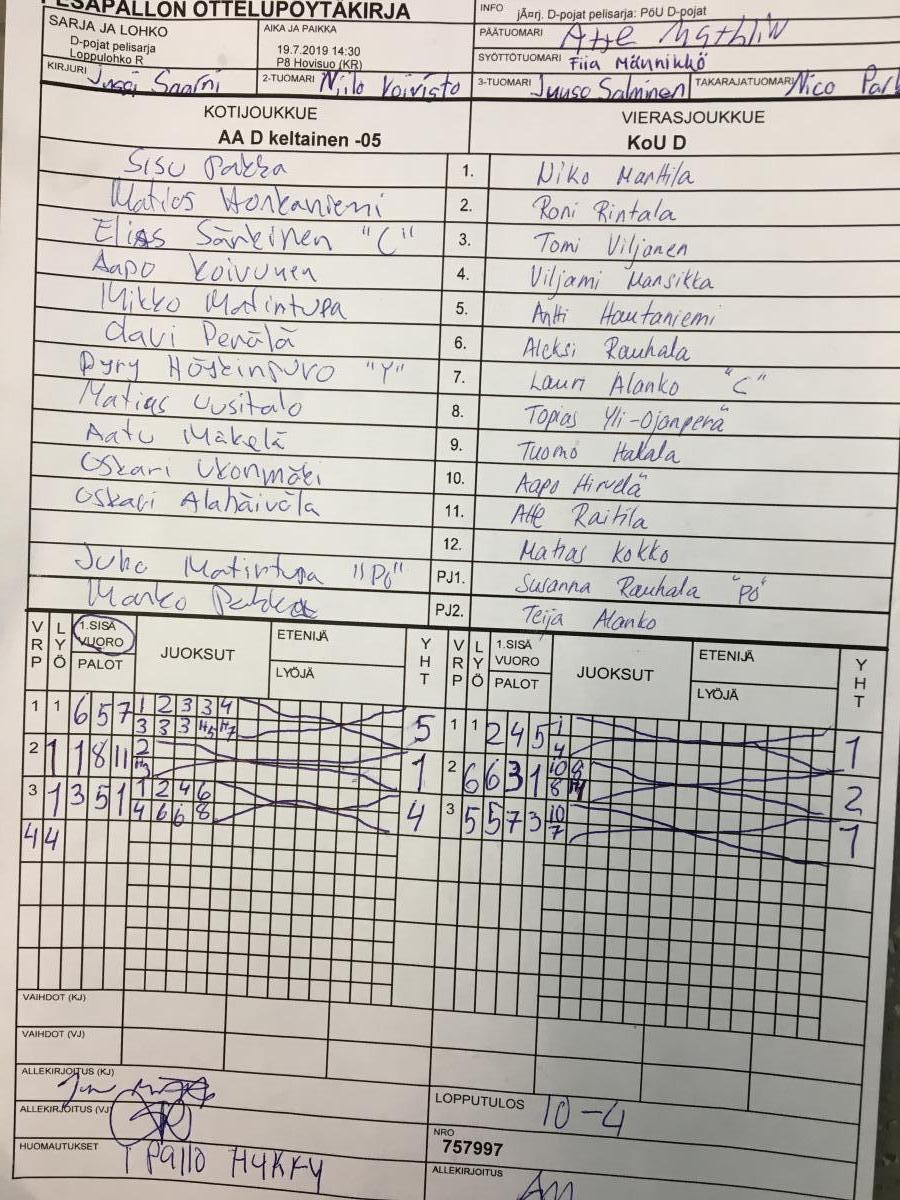 PESÄPALLON OTTELUPÖYTÄKIRJA
INFO jÃ¤rj. D-pojat pelisarja: PöU D-pojat
SARJA JA LOHKO
D-pojat pelisarja
Loppulohko R
AIKA JA PAIKKA
19.7.2019 14:30
P8 Hovisuo (KR)
PÄÄTUOMARI
SYÖTTÖTUOMARI Fiia Männikkö
KIRJURI Jussi Saarni
2-TUOMARI Niilo Koivisto
3-TUOMARI Juuso Salminen
TAKARAJATUOMARI Nico
KOTIJOUKKUE
AA D keltainen -05
VIERASJOUKKUE
KoU D
Sisu Pakka 1. Niko Manttila
Matias Honkaniemi 2. Roni Rintala
Elias Särkinen "C" 3. Tomi Viljanen
Aapo Koivunen 4. Viljami Mansikka
Mikko Matintupa 5. Antti Hautaniemi
Olavi Perälä 6. Aleksi Rauhala
Pyry Höykinpuro "Y" 7. Lauri Alanko "C"
Matias Uusitalo 8. Topias Yli-Ojanperä
Aatu Mäkelä 9. Tuomo Hakala
Oskari Ukonmäki 10. Aapo Hirvelä
Oskari Alahäivälä 11. Atte Raitila
12. Matias Kokko
Juho Matintupa "PO" PJ1. Susanna Rauhala "PO"
Marko Pakka PJ2. Teija Alanko
VRP LYÖ 1.SISÄ VUORO PALOT JUOKSUT ETENIJÄ LYÖJÄ YHT VRP LYÖ 1.SISÄ VUORO PALOT JUOKSUT ETENIJÄ LYÖJÄ YHT
1 1 6 5 7 1 2 3 3 4 5 1 1 2 4 5 1 1
3 3 3 H5 H7 4
2 1 1 8 11 2 1 2 6 6 3 1 10 9 2
8
3 1 3 5 1 1 2 4 6 4 3 5 5 7 3 10 1
4 6 6 8 7
4 4
VAIHDOT (KJ)
VAIHDOT (VJ)
ALLEKIRJOITUS (KJ)
ALLEKIRJOITUS (VJ)
LOPPUTULOS 10-4
NRO
757997
HUOMAUTUKSET 1 Pallo Hykky
ALLEKIRJOITUS